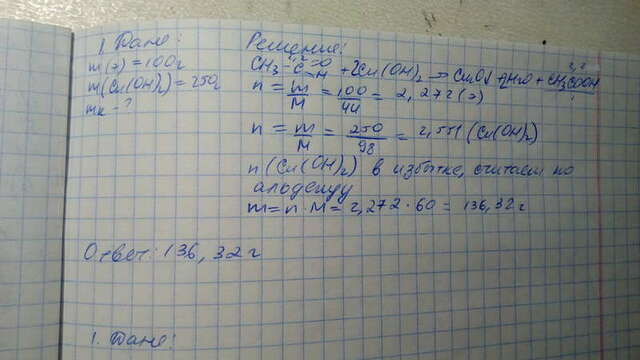 1. Дано:
m(э) = 100г
m(Cu(OH)₂) = 250г
mк - ?
Решение:
CH₃ - C =O -H + 2Cu(OH)₂ → CH₃COOH
n = m/M = 100/44 = 2,272(э)
n = m/M = 250/98 = 2,551 (Cu(OH)₂)
n(Cu(OH)₂) в избытке, считаем по
альдегиду
m = n · M = 2,272 · 60 = 136,32г
Ответ: 136,32г
1. Дано: